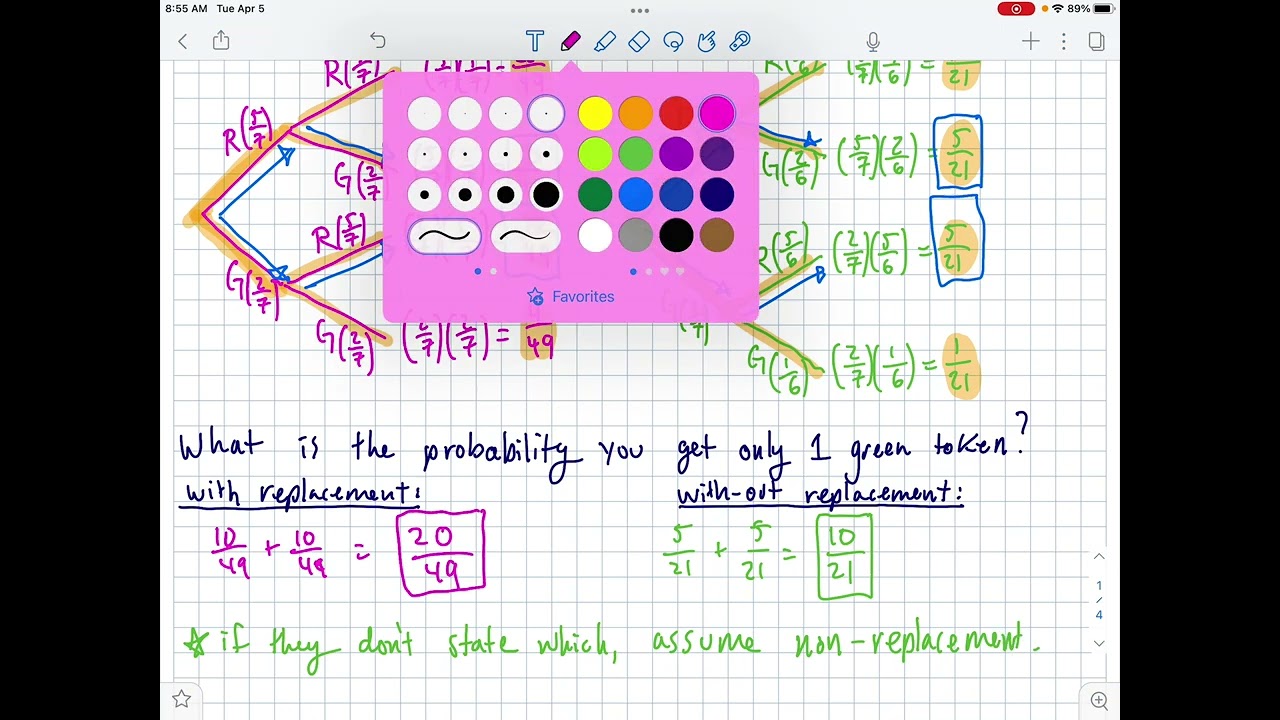 8:55 AM Tue Apr 5
89%
T
R(5/7)
R(5/7)
G(2/7)
R(5/7)
G(2/7)
G(2/7) (2/7)(2/7) = 4/49
Favorites
21
G(2/6) (5/7)(2/6) = 5/21
R(5/6) (2/7)(5/6) = 5/21
G(1/6) (2/7)(1/6) = 1/21
What is the probability you get only 1 green token?
with replacement:
with-out replacement:
10/49 + 10/49 = 20/49
5/21 + 5/21 = 10/21
☆ if they don't state which, assume non-replacement.
1
/
4